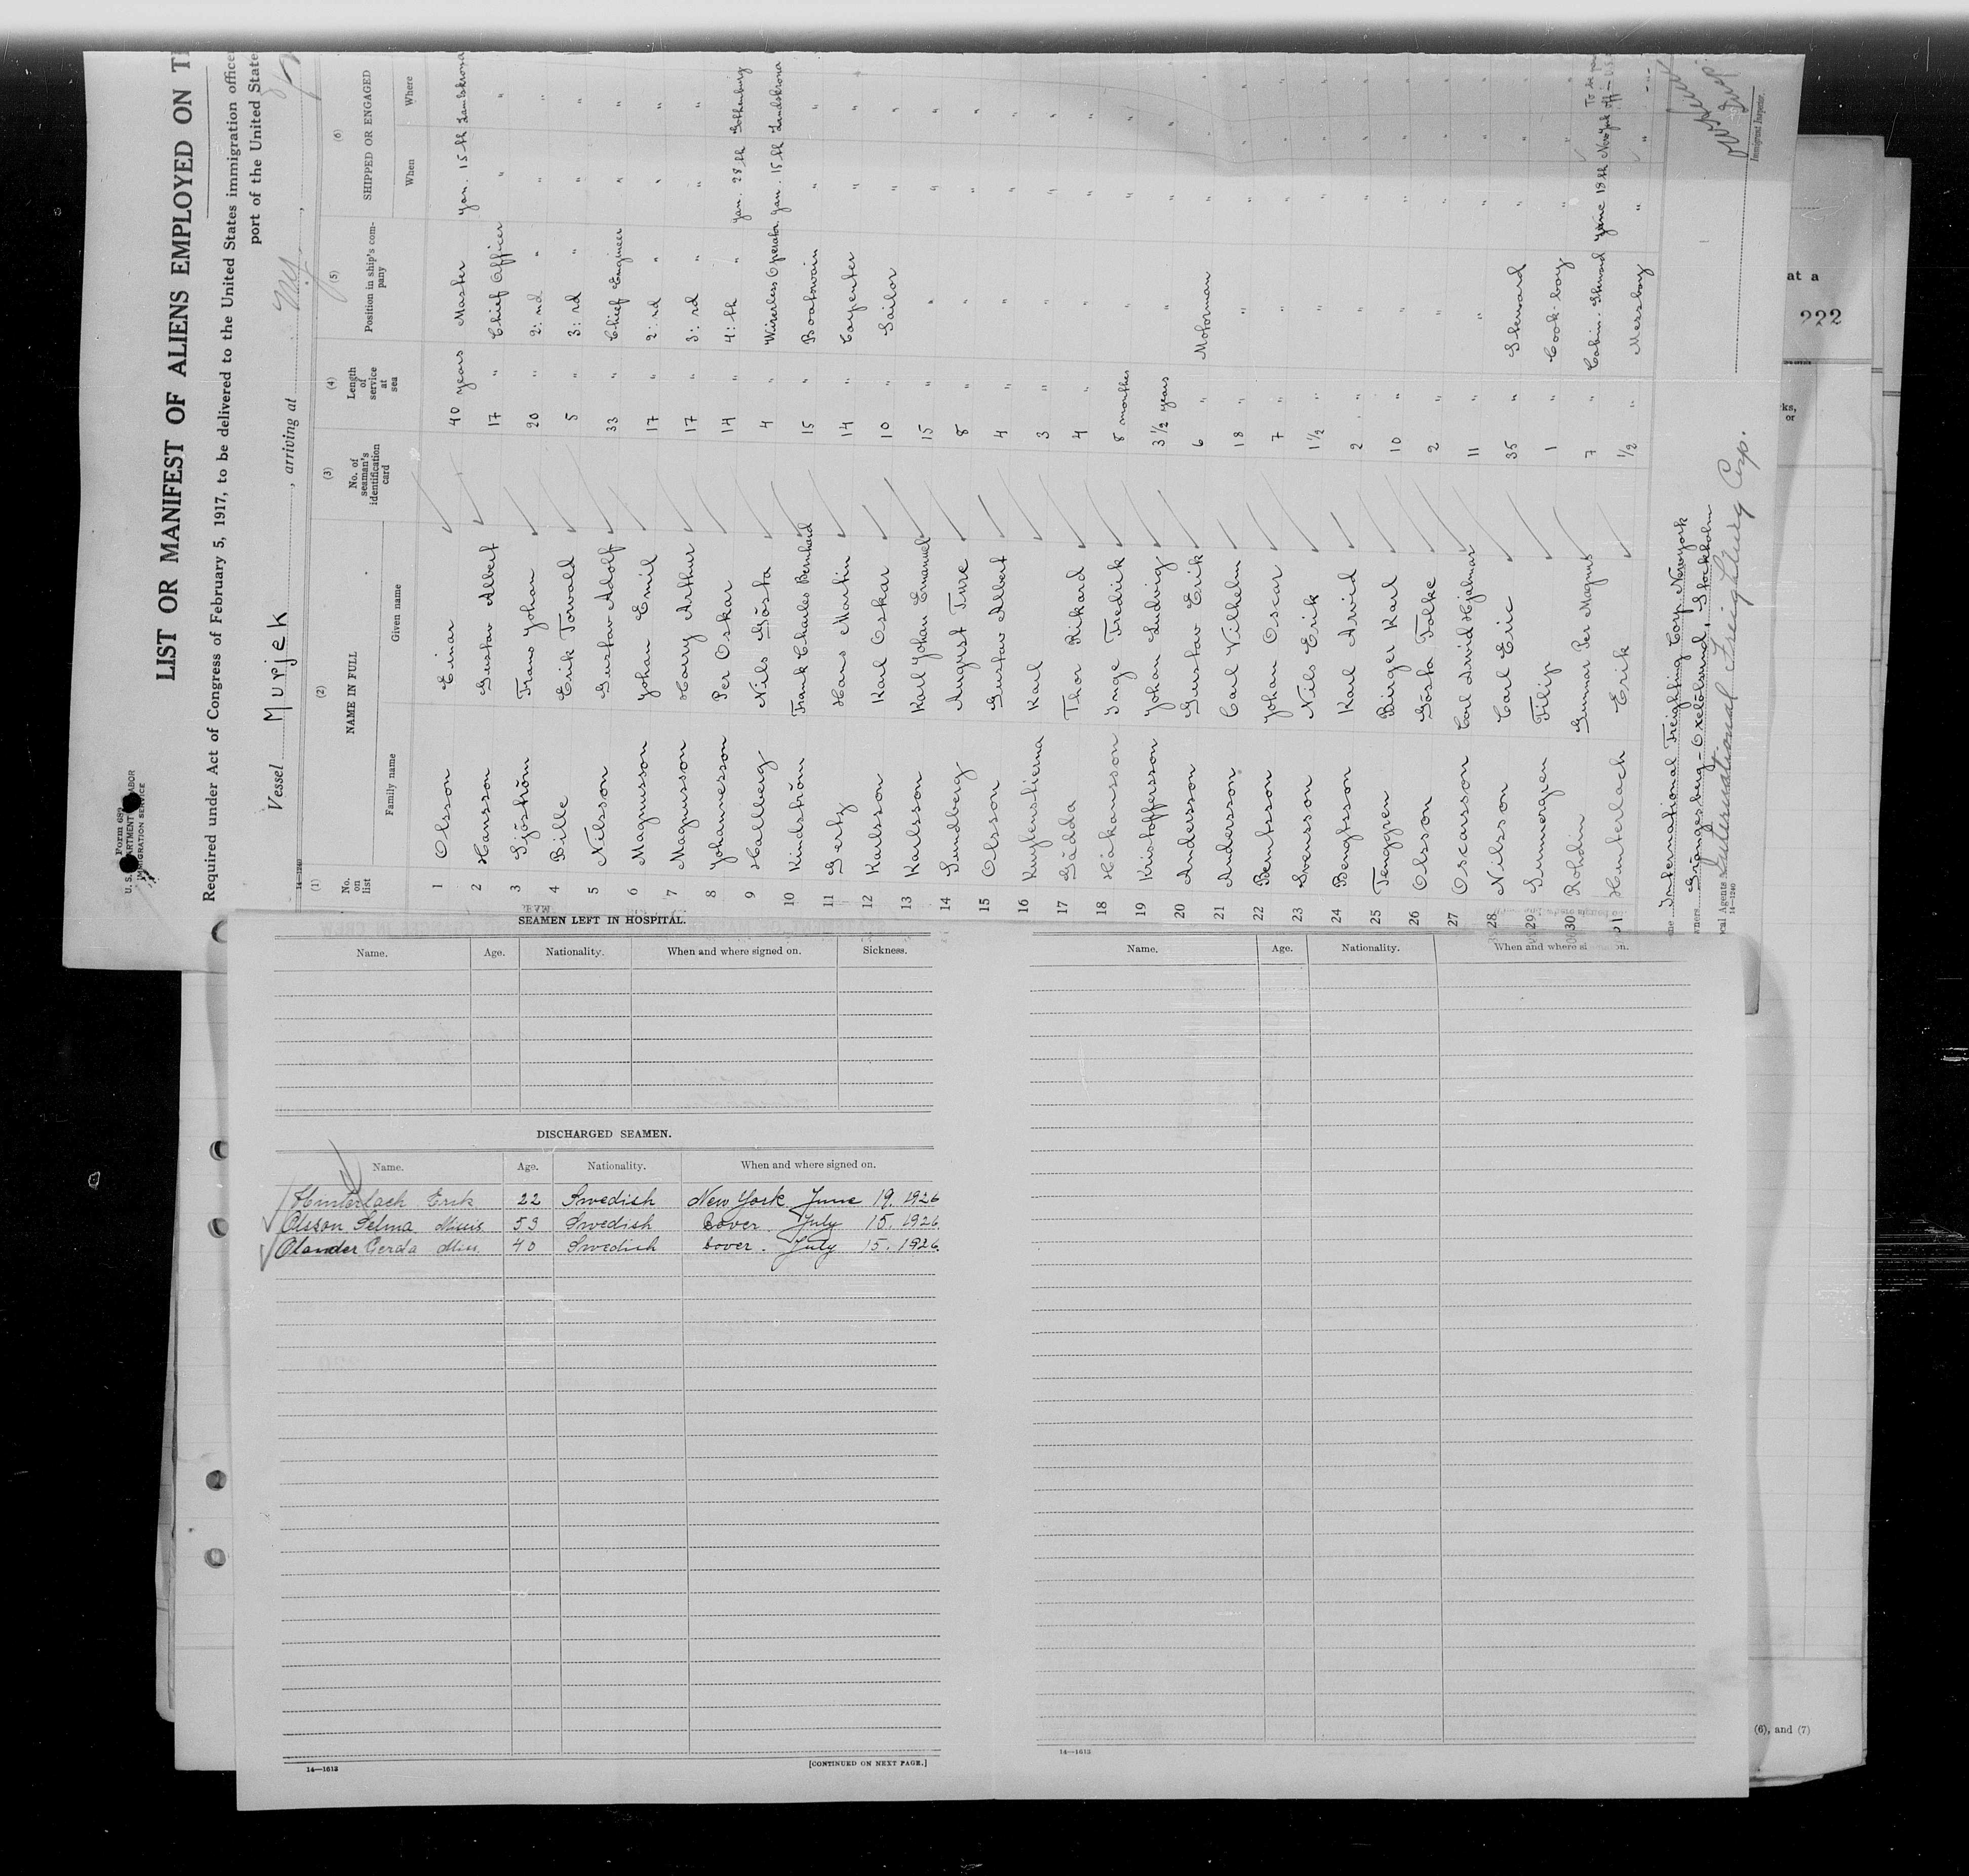 Form 689
U. S. DEPARTMENT OF LABOR
IMMIGRATION SERVICE
LIST OR MANIFEST OF ALIENS EMPLOYED ON T
Required under Act of Congress of February 5, 1917, to be delivered to the United States immigration office
port of the United State
Vessel Murjek , arriving at ,
14—1240
(1) (2) (3) (4) (5) (6)
No. on list NAME IN FULL No. of seaman's identification card Length of service at sea Position in ship's company SHIPPED OR ENGAGED
Family name Given name When Where
1 Olsson Einar 40 years Master Jan. 15th Landskrona
2 Hansson Gustav Albert 17 " Chief Officer " "
3 Sjöström Frans Johan 20 " 2:nd " " "
4 Bille Erik Torvald 5 " 3:rd " " "
5 Nilsson Gustav Adolf 33 " Chief Engineer " "
6 Magnusson Johan Emil 17 " 2:nd " " "
7 Magnusson Harry Arthur 17 " 3:rd " " "
8 Johannesson Per Oskar 14 " 4:th " Jan. 28th Gothenburg
9 Hallberg Nils Gösta 4 " Wireless Operator Jan. 15th Landskrona
10 Kindström Frank Charles Bernhard 15 " Boatswain " "
11 Gertz Hans Martin 14 " Carpenter " "
12 Karlsson Karl Oskar 10 " Sailor " "
13 Karlsson Karl Johan Emanuel 15 " " " "
14 Lundberg August Ture 8 " " " "
15 Olsson Gustav Albert 4 " " " "
16 Kuylenstierna Karl 3 " " " "
17 Gädda Thor Rikard 4 " " " "
18 Håkansson Inge Fredrik 8 months " " "
19 Kristoffersson Johan Ludvig 3 1/2 years " " "
20 Andersson Gustav Erik 6 " Motorman " "
21 Andersson Carl Vilhelm 18 " " " "
22 Berntsson Johan Oscar 7 " " " "
23 Svensson Nils Erik 1 1/2 " " " "
24 Bengtsson Karl Arvid 2 " " " "
25 Tenggren Birger Karl 10 " " " "
26 Olsson Gösta Folke 2 " " " "
27 Oscarsson Carl David Hjalmar 11 " " " "
28 Nilsson Carl Eric 35 " Steward " "
29 Filip 1 " Cook-boy " "
30 Rohdin Gunnar Per Magnus 7 " Cabin-Steward June 19th New York
31 Hunterlach Erik 1/2 " Messboy " "
International Freighting Corp. New York
wners Grängesberg-Oxelösund, Stockholm
cal Agents International Freighting Corp.
14—1240
Immigrant Inspector.
at a
222
ks,
or
(6), and (7)
SEAMEN LEFT IN HOSPITAL.
Name. Age. Nationality. When and where signed on. Sickness.
DISCHARGED SEAMEN.
Name. Age. Nationality. When and where signed on.
Hunterlach Erik 22 Swedish New York June 19. 1926
Olsson Selma 53 Swedish Dover July 15. 1926.
Olander Gerda 40 Swedish Dover. July 15. 1926.
14—1613
[CONTINUED ON NEXT PAGE.]
Name. Age. Nationality. When and where si n.
14—1613